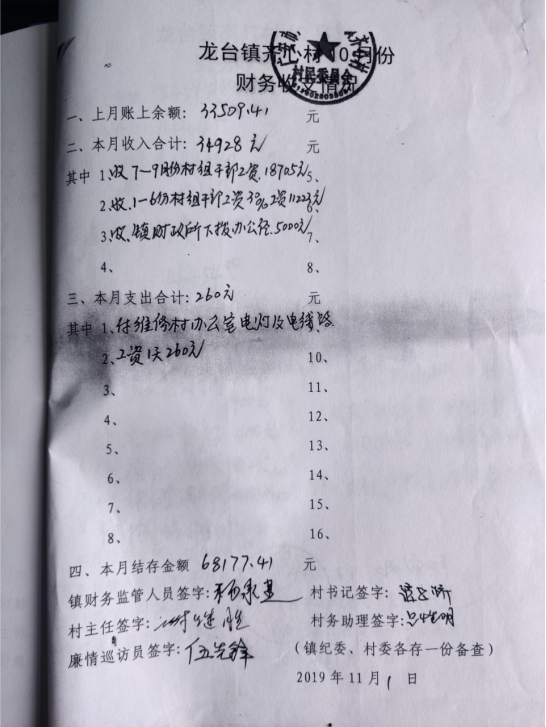 龙台镇齐心村10月份
财务收支情况
村民委员会
一、上月账上余额：33509.41 元
二、本月收入合计：34928元 元
其中 1、收7～9月份村组干部工资.18705元 5、
2、收.1－6份村组干部工资30%工资11223元 6、
3、收、镇财政所下拨办公经.5000元 7、
4、 8、
三、本月支出合计：260元 元
其中 1、付维修村办公室电灯及电线路
2、工资1天260元 10、
3、 11、
4、 12、
5、 13、
6、 14、
7、 15、
8、 16、
四、本月结存金额 68177.41 元
镇财务监管人员签字： 村书记签字：
村主任签字： 村务助理签字：
廉情巡访员签字：伍先锋 （镇纪委、村委各存一份备查）
2019年11月1日